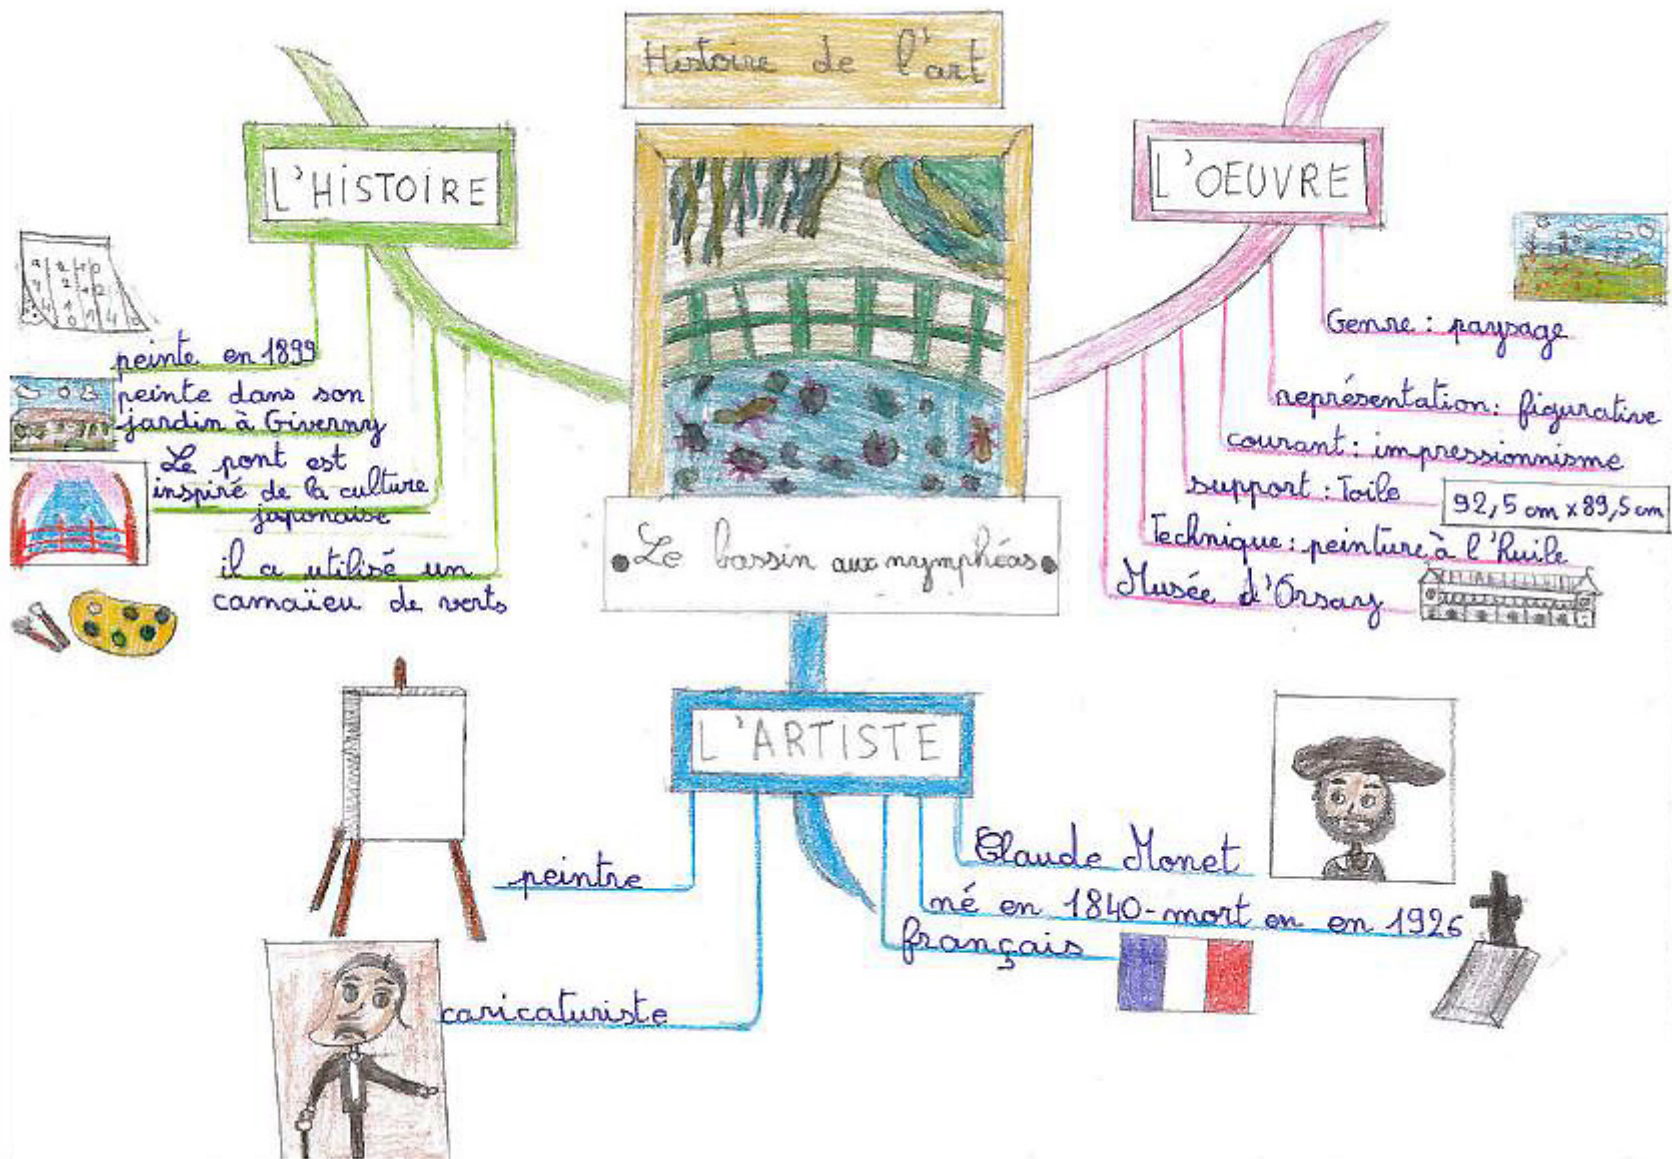 Histoire de l'art
L'HISTOIRE
peinte en 1899
peinte dans son
jardin à Giverny
Le pont est
inspiré de la culture
japonaise
il a utilisé un
camaïeu de verts
Le bassin aux nymphéas
L'OEUVRE
Genre : paysage
représentation : figurative
courant : impressionnisme
support : Toile
92,5 cm x 89,5 cm
Technique : peinture à l'huile
Musée d'Orsay
L'ARTISTE
peintre
caricaturiste
Claude Monet
né en 1840 - mort en en 1926
français